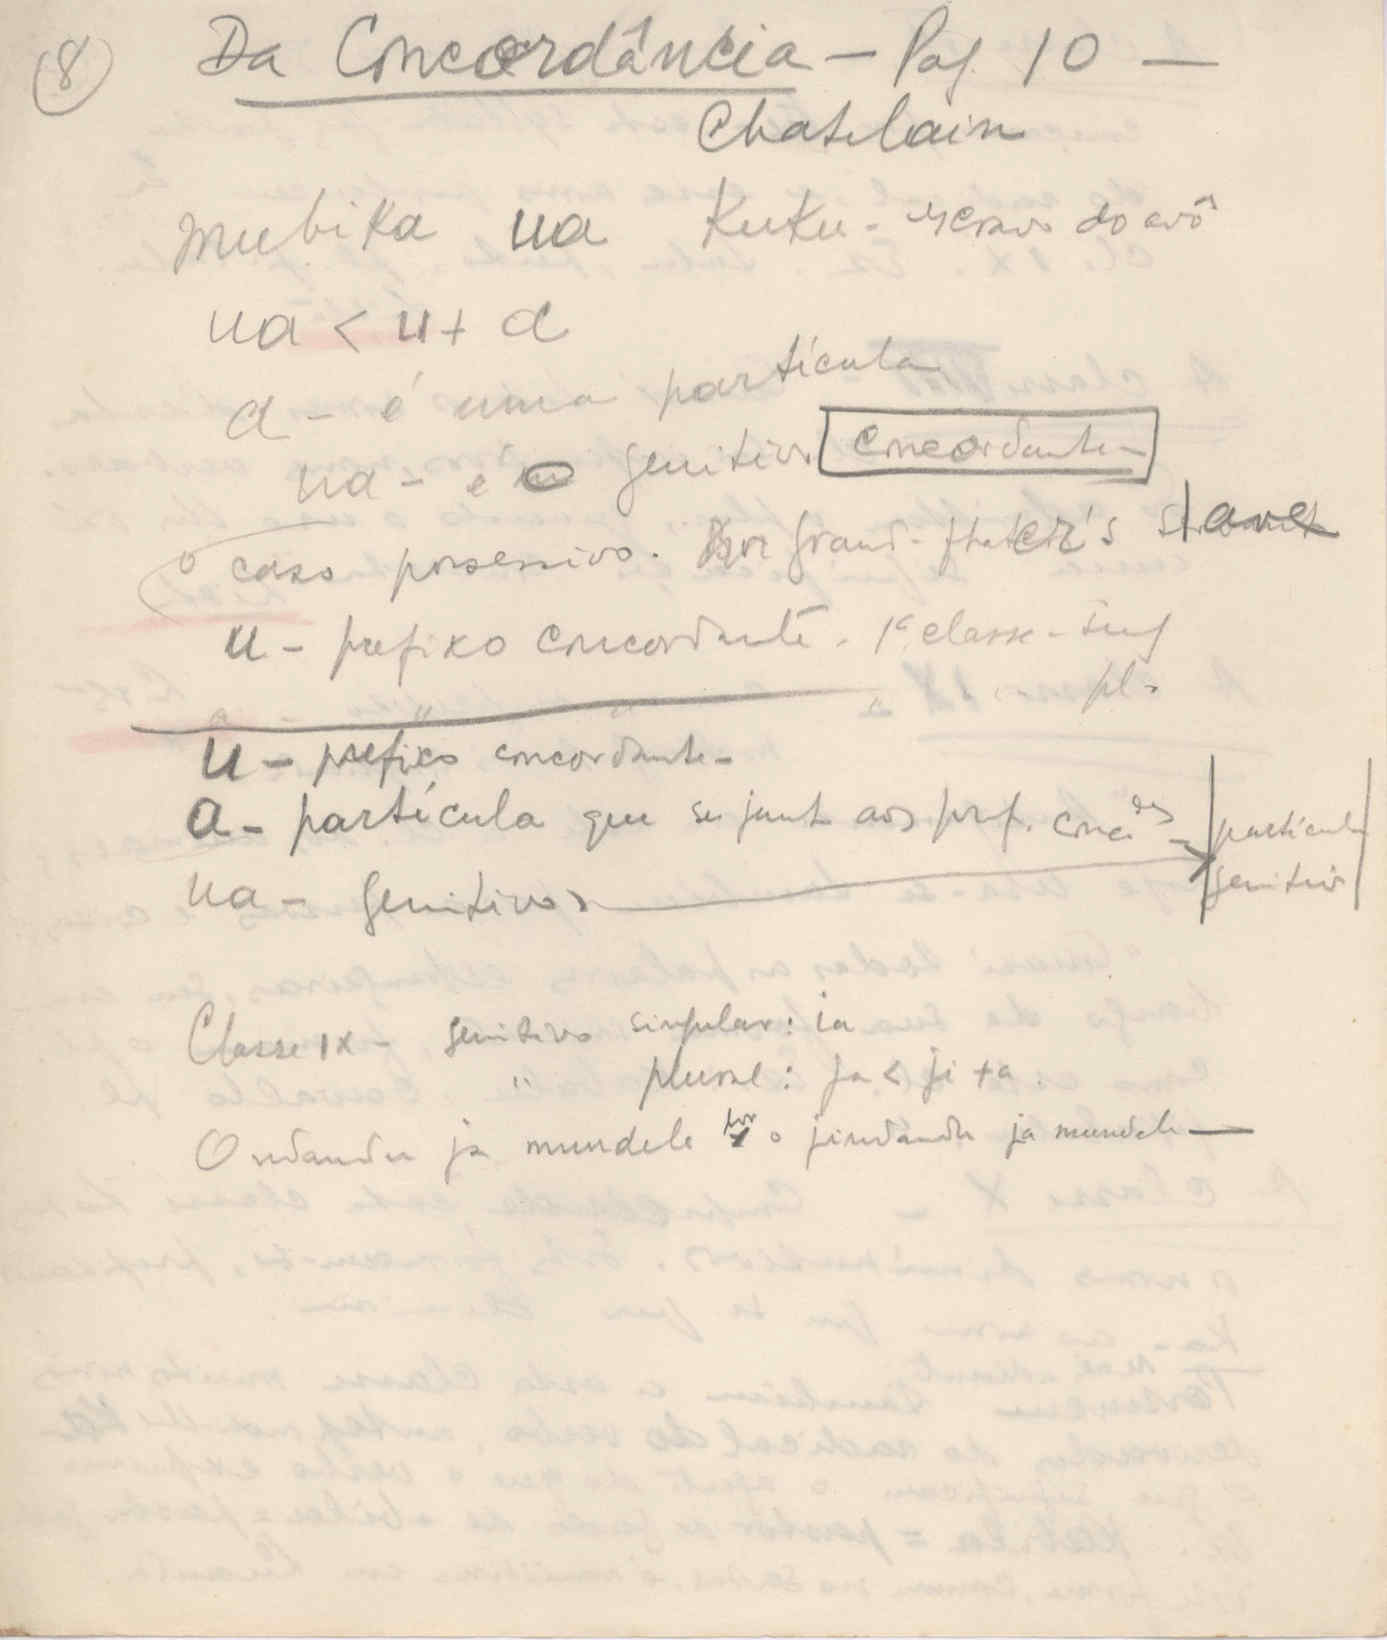 8
Da Concordância – Pag. 10 —
Chatelain
mubika ua Kuku - do avô
ua < u + a
a – é uma partícula
ua – é o genitivo concordante –
o caso possessivo. grand-father's slave
u – prefixo concordante - 1ª classe - sing
" " " " pl -
u – prefixo concordante –
a – partícula que se junta aos pref. conc.des – partícula
ua – genitivos genitivo
Classe IX – genitivo singular: ia
" plural: ja < ji + a.
O ndandu ja mundele por o jindandu ja mundele —